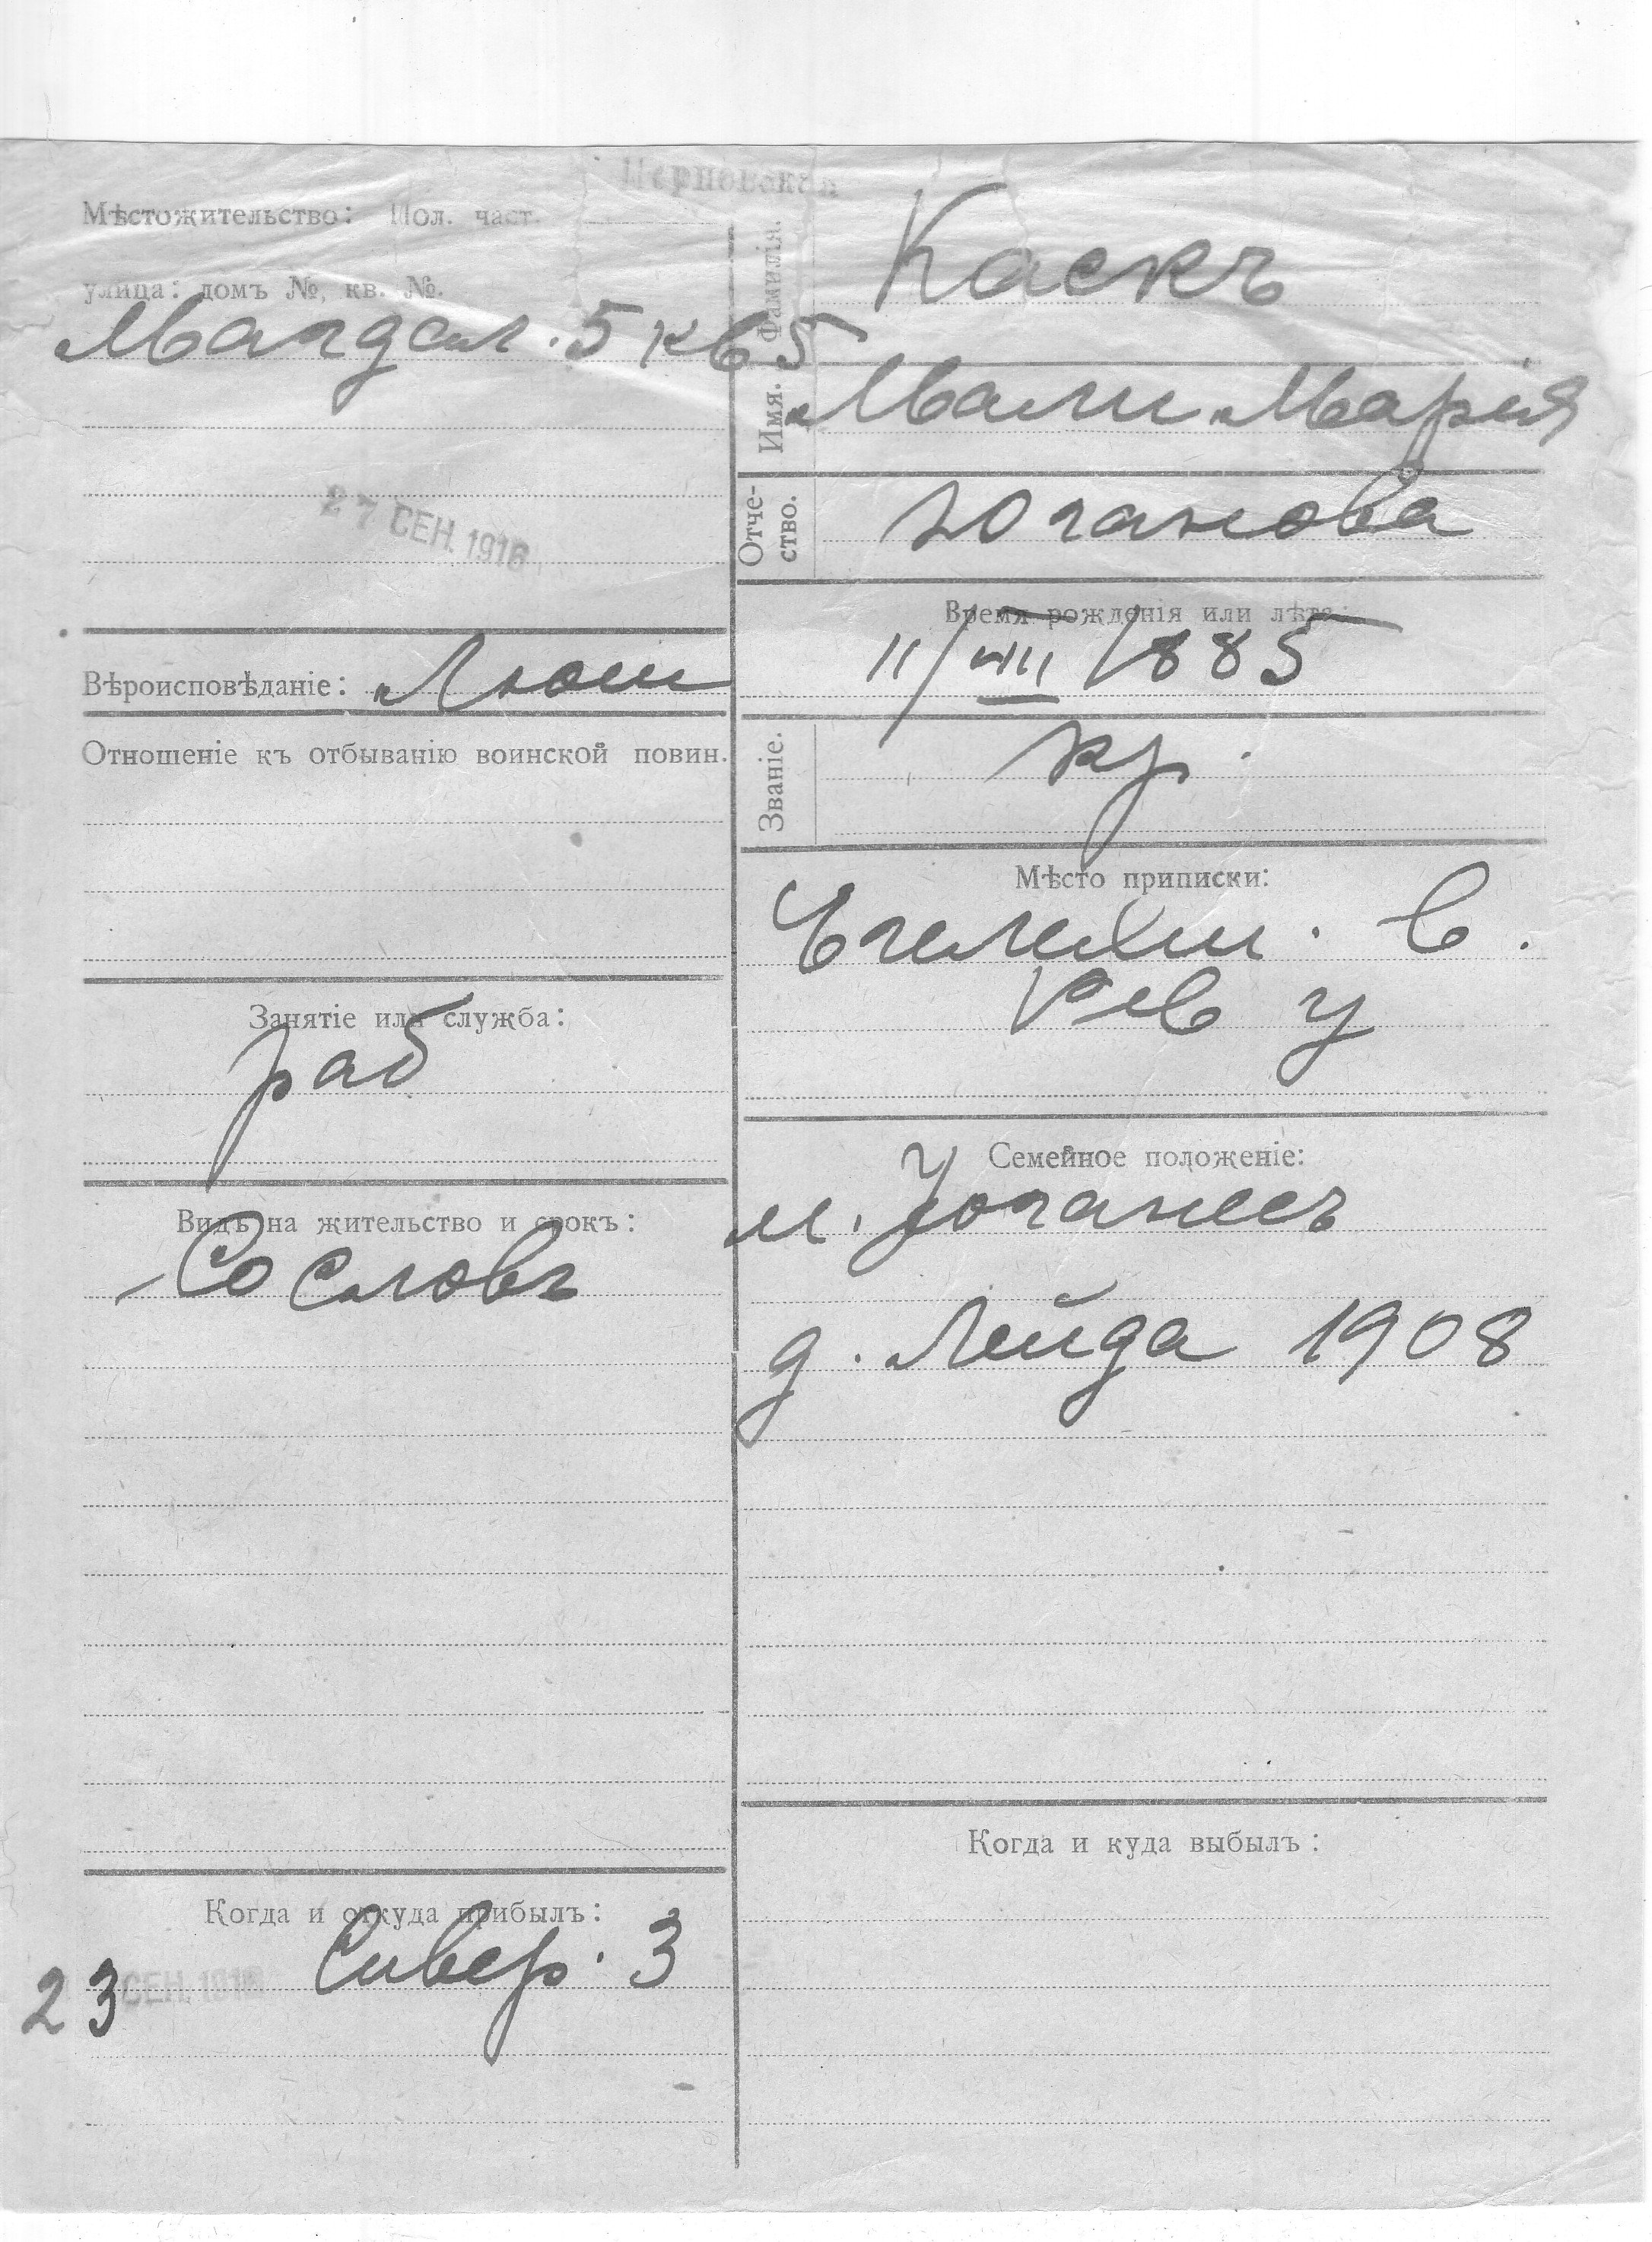 Перновская
Мѣстожительство: Пол. част.
улица: домъ №, кв. №.
Магдал. 5 кв 5
27 СЕН. 1916
Вѣроисповѣданіе: Лют
Отношеніе къ отбыванію воинской повин.
Занятіе или служба:
раб
Видъ на жительство и срокъ:
Со словъ
Когда и откуда прибылъ:
Сивер. 3
23 СЕН. 1916
Фамилія.
Каскъ
Имя.
Мали Марія
Отче-
ство.
Юганова
Время рожденія или лѣта:
11/VIII 1885
Званіе.
кр.
Мѣсто приписки:
в.
Рев у
Семейное положеніе:
м. Юганесъ
д. Лейда 1908
Когда и куда выбылъ: